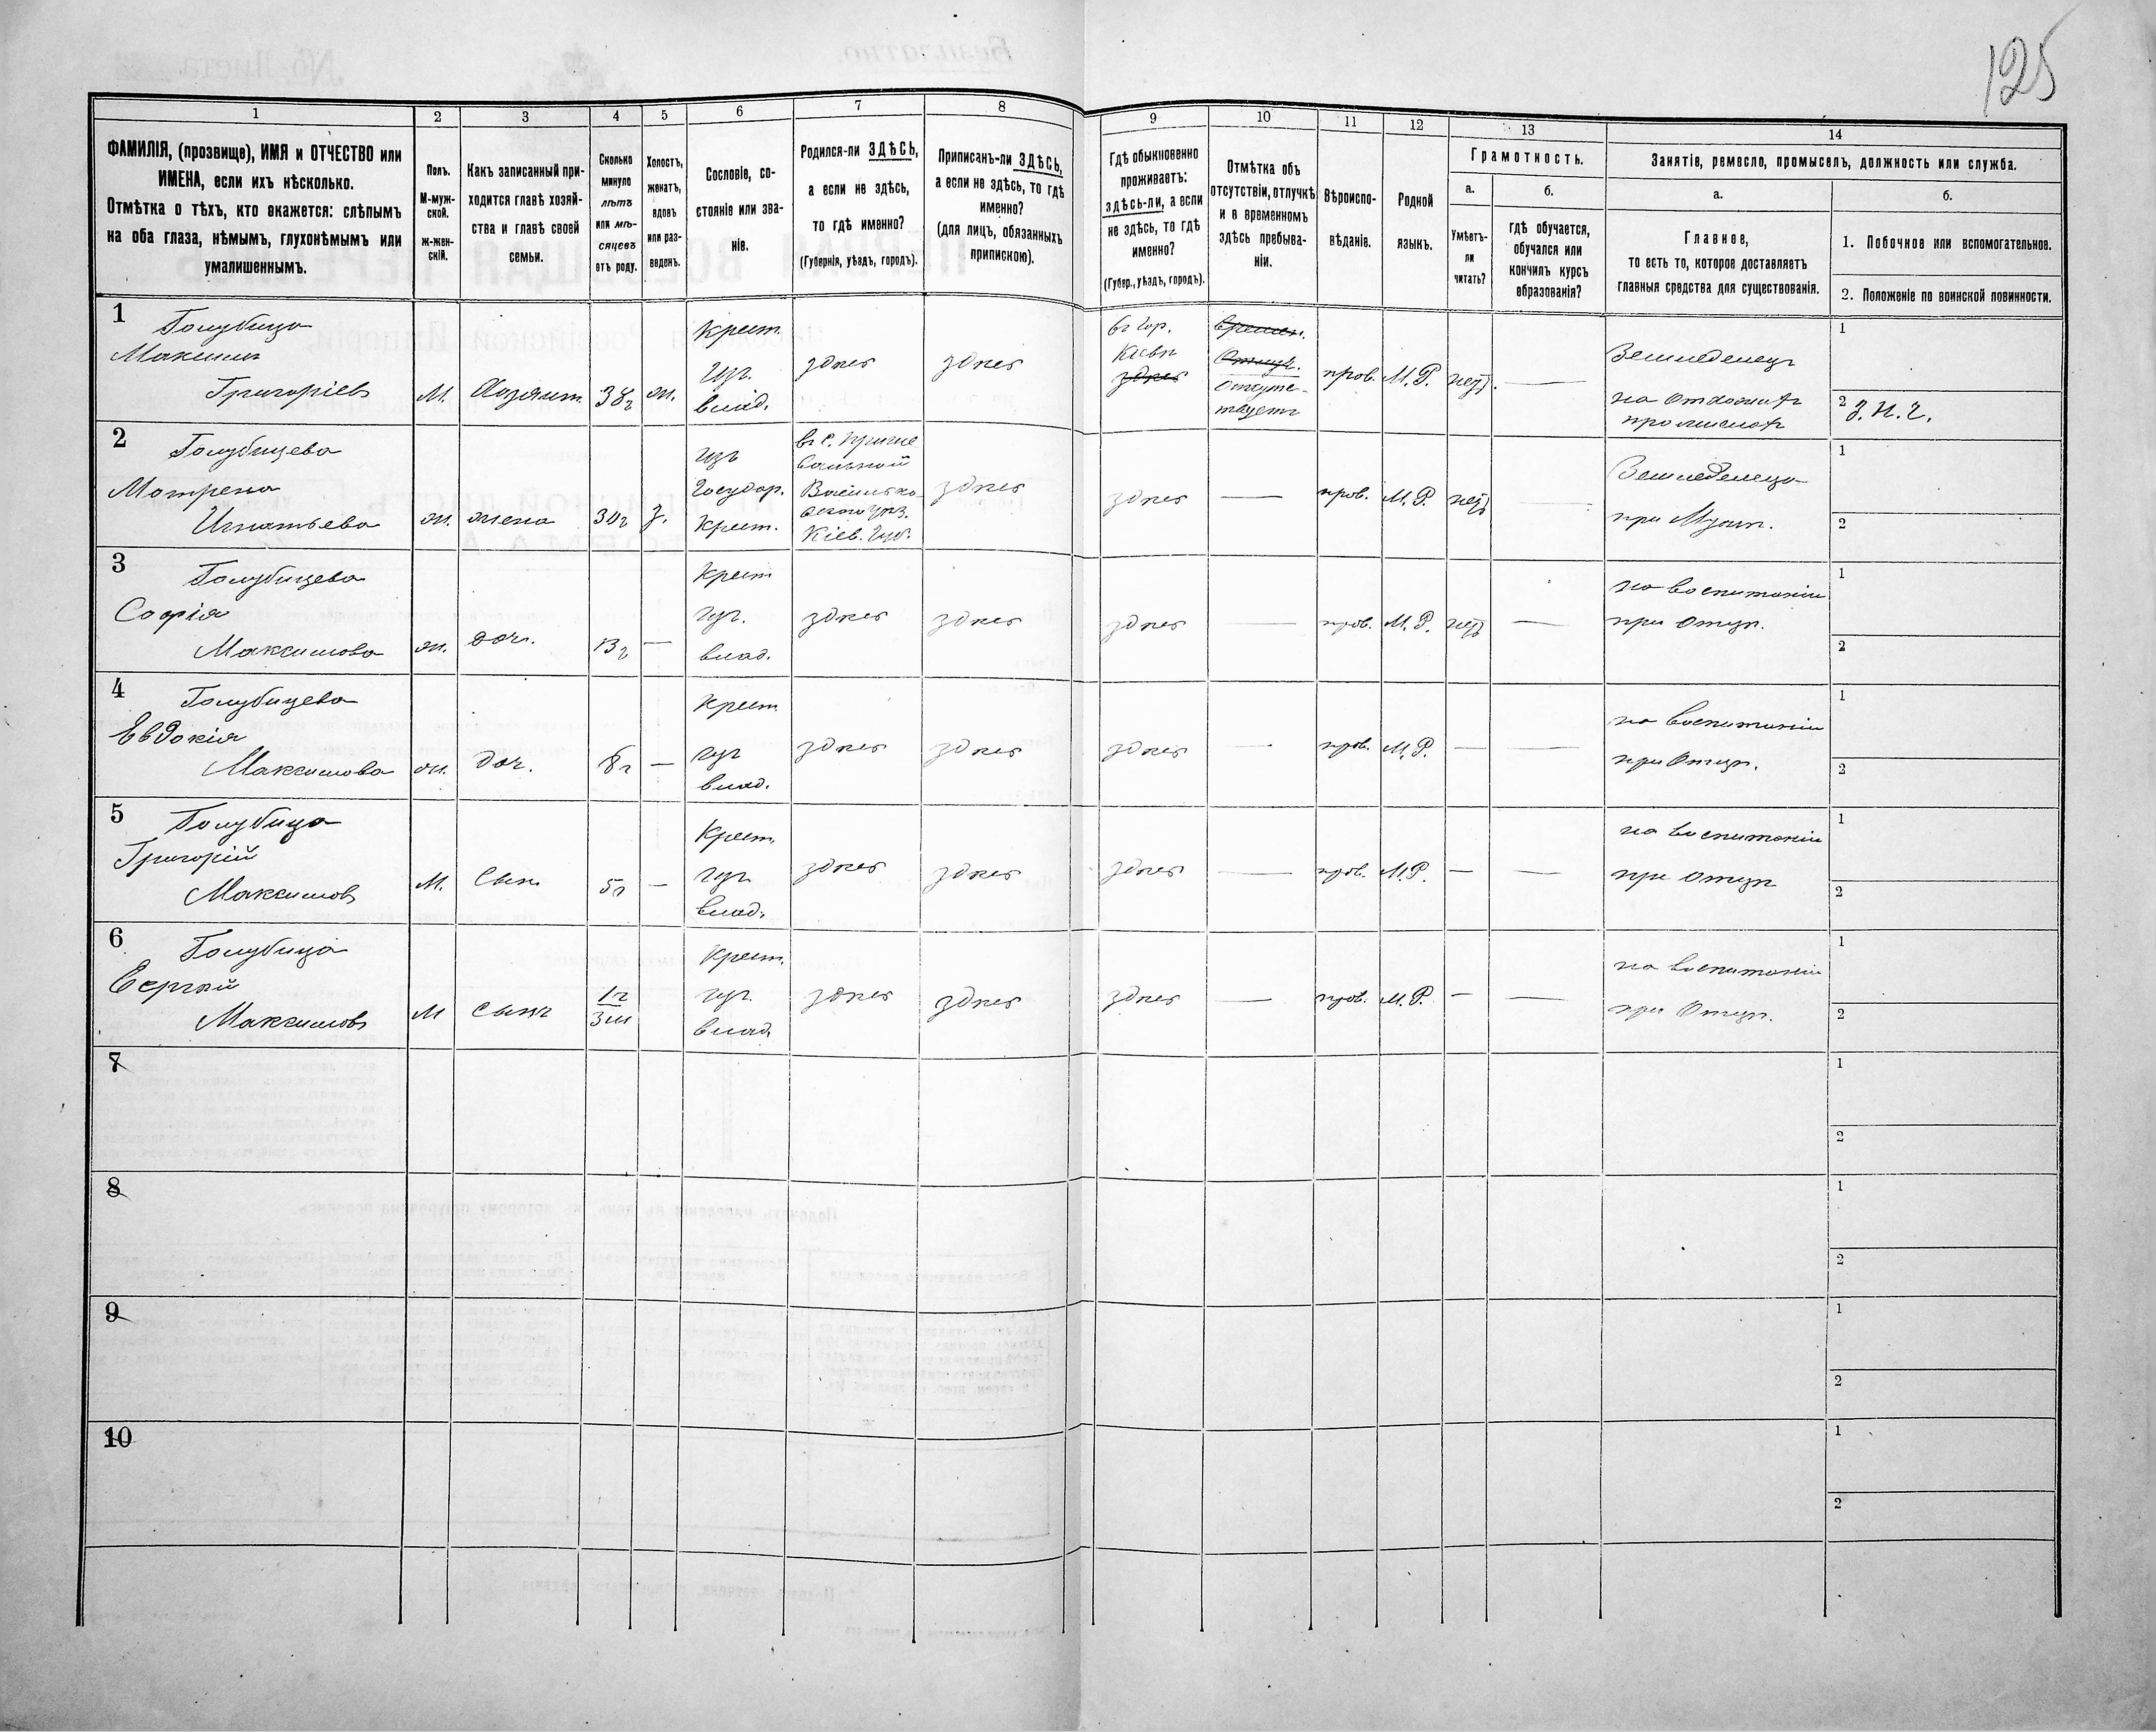 125
1 2 3 4 5 6 7 8 9 10 11 12 13 14
ФАМИЛІЯ, (прозвище), ИМЯ и ОТЧЕСТВО или
ИМЕНА, если ихъ нѣсколько.
Отмѣтка о тѣхъ, кто окажется: слѣпымъ
на оба глаза, нѣмымъ, глухонѣмымъ или
умалишеннымъ.
Полъ.
М-муж-
ской.
ж-жен-
скій.
Какъ записанный при-
ходится главѣ хозяй-
ства и главѣ своей
семьи.
Сколько
минуло
лѣтъ
или мѣ-
сяцевъ
отъ роду.
Холостъ,
женатъ,
вдовъ
или раз-
веденъ.
Сословіе, со-
стояніе или зва-
ніе.
Родился-ли ЗДѢСЬ,
а если не здѣсь,
то гдѣ именно?
(Губернія, уѣздъ, городъ).
Приписанъ-ли ЗДѢСЬ,
а если не здѣсь, то гдѣ
именно?
(для лицъ, обязанныхъ
припискою).
Гдѣ обыкновенно
проживаетъ:
здѣсь-ли, а если
не здѣсь, то гдѣ
именно?
(Губер., уѣздъ, городъ).
Отмѣтка объ
отсутствіи, отлучкѣ
и о временномъ
здѣсь пребыва-
ніи.
Вѣроиспо-
вѣданіе.
Родной
языкъ.
Грамотность.
а.
Умѣетъ-
ли
читать?
б.
гдѣ обучается,
обучался или
кончилъ курсъ
образованія?
Занятіе, ремесло, промыселъ, должность или служба.
а.
Главное,
то есть то, которое доставляетъ
главныя средства для существованія.
б.
1. Побочное или вспомогательное.
2. Положеніе по воинской повинности.
1
Голубица
Максимъ
Григоріевъ
М.
Хозяин
38 г
ж.
крест.
изъ.
влад.
здѣсь
здѣсь
въ гор.
Кіевѣ
здѣсь
времен.
Отсутст-
твуетъ
прав.
М.Р.
нѣтъ.
Земледелец
на отхожихъ
промыслахъ
1
2 З.Н.Ч.
2
Голубицева
Мотрена
Игнатьева
ж.
жена
30 г
З.
изъ
Государ.
крест.
Васильков
скаго уѣз.
Кіев. Губ.
здѣсь
здѣсь
прав.
М.Р.
нѣтъ
Земледелеца
при Мужѣ.
1
2
3
Голубицева
Софія
Максимова
ж.
доч.
13 г
—
крест
из.
влад.
здѣсь
здѣсь
здѣсь
—
прав.
М.Р.
нѣтъ
—
на воспитаніи
при Отцѣ.
1
2
4
Голубицева
Евдокія
Максимова
ж.
доч.
8 г
—
крест
изъ
влад.
здѣсь
здѣсь
здѣсь
—
прав.
М.Р.
—
—
на воспитаніи
при Отцѣ.
1
2
5
Голубица
Григорій
Максимовъ
М.
Сын
5 г
—
крест.
изъ
влад.
здѣсь
здѣсь
здѣсь
—
прав.
М.Р.
—
—
на воспитаніи
при Отцѣ
1
2
6
Голубица
Сергѣй
Максимовъ
М
Сынъ
1 г
3 м
крест.
из.
влад.
здѣсь
здѣсь
здѣсь
—
прав.
М.Р.
—
—
на воспитаніи
при Отцѣ.
1
2
7
1
2
8
1
2
9
1
2
10
1
2